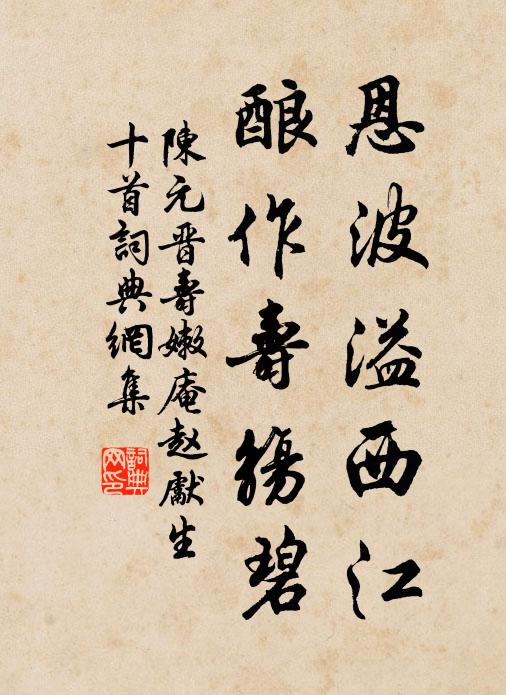 恩波溢西江
酿作壽觴碧
陳元晋壽嫩庵赵獻生
十首詞典網集
詞典网印